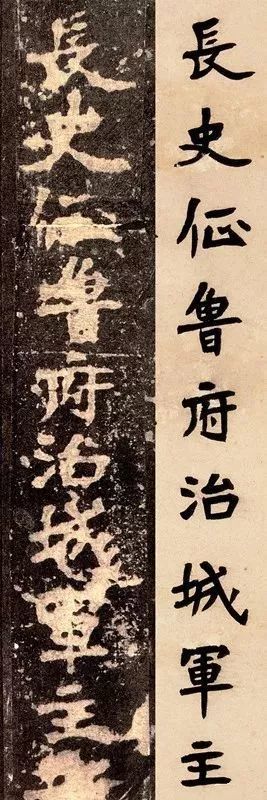 長史征魯府治城軍主
長史征魯府治城軍主